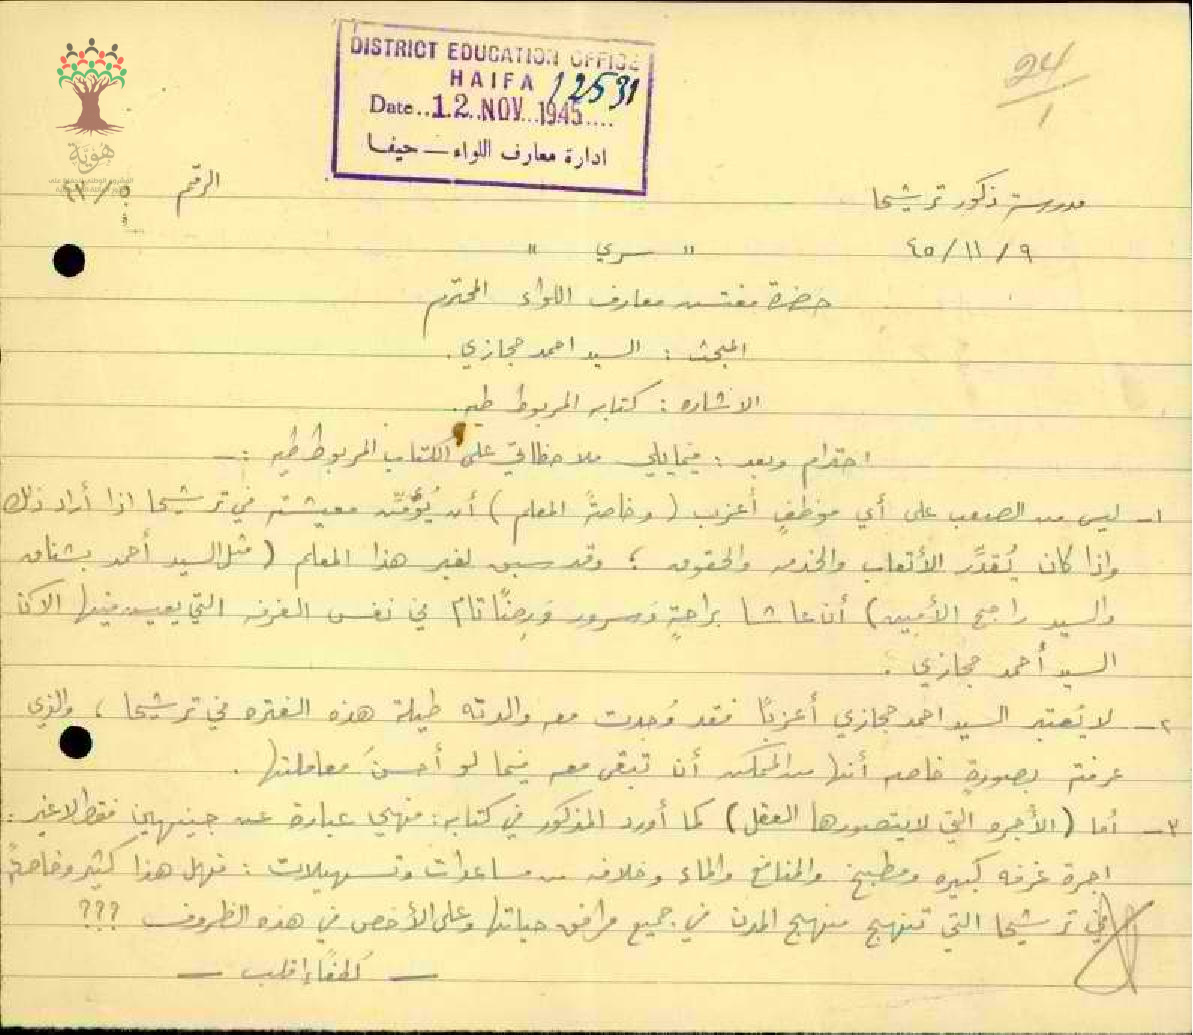 DISTRICT EDUCATION OFFICE
HAIFA 12531
Date..12.NOV...1945....
ادارة معارف اللواء — حيفا
24
1
هُويَّة
مدرسة ذكور ترشيحا
الرقم ٥/٤٢
٩/١١/٤٥
" سري "
حضرة مفتش معارف اللواء المحترم
المبحث : السيد احمد حجازي .
الاشاره : كتابه المربوط طيه .
احترام وبعد : فيما يلي ملاحظاتي على الكتاب المربوط طيه :ـ
١ـ ليس من الصعب على أي موظفٍ أعزب (وخاصةً المعلم) أن يُؤَمِّن معيشته في ترشيحا اذا أراد ذلك
واذا كان يُقدِّر الأتعاب والخدمه والحقوق ؛ وقد سبق لغير هذا المعلم (مثل السيد أحمد بشناق
والسيد راجح الأمين) أن عاشا براحةٍ وَسرور وَرِضًا تام في نفس الغرفه التي يعيش فيها الآن
السيد أحمد حجازي .
٢ـ لا يُعتبر السيد احمد حجازي أعزبًا فقد وُجدت معه والدته طيلة هذه الفتره في ترشيحا ، والذي
عرفته بصورةٍ خاصه أنها من الممكن أن تبقى معه فيما لو أحسنَ مُعاملتها .
٣ـ أما (الأجره التي لا يتصورها العقل) كما أورد المذكور في كتابه : فهي عبارة عن جنيهين فقط لا غير :
اجرة غرفه كبيره ومطبخ والمنافع والماء وخلافه من مساعدات وتسهيلات : فهل هذا كثير وخاصةً
في ترشيحا التي تنهج منهج المدن في جميع مرافق حياتها وعلى الأخص في هذه الظروف ???
— لُطفًا اقلب —